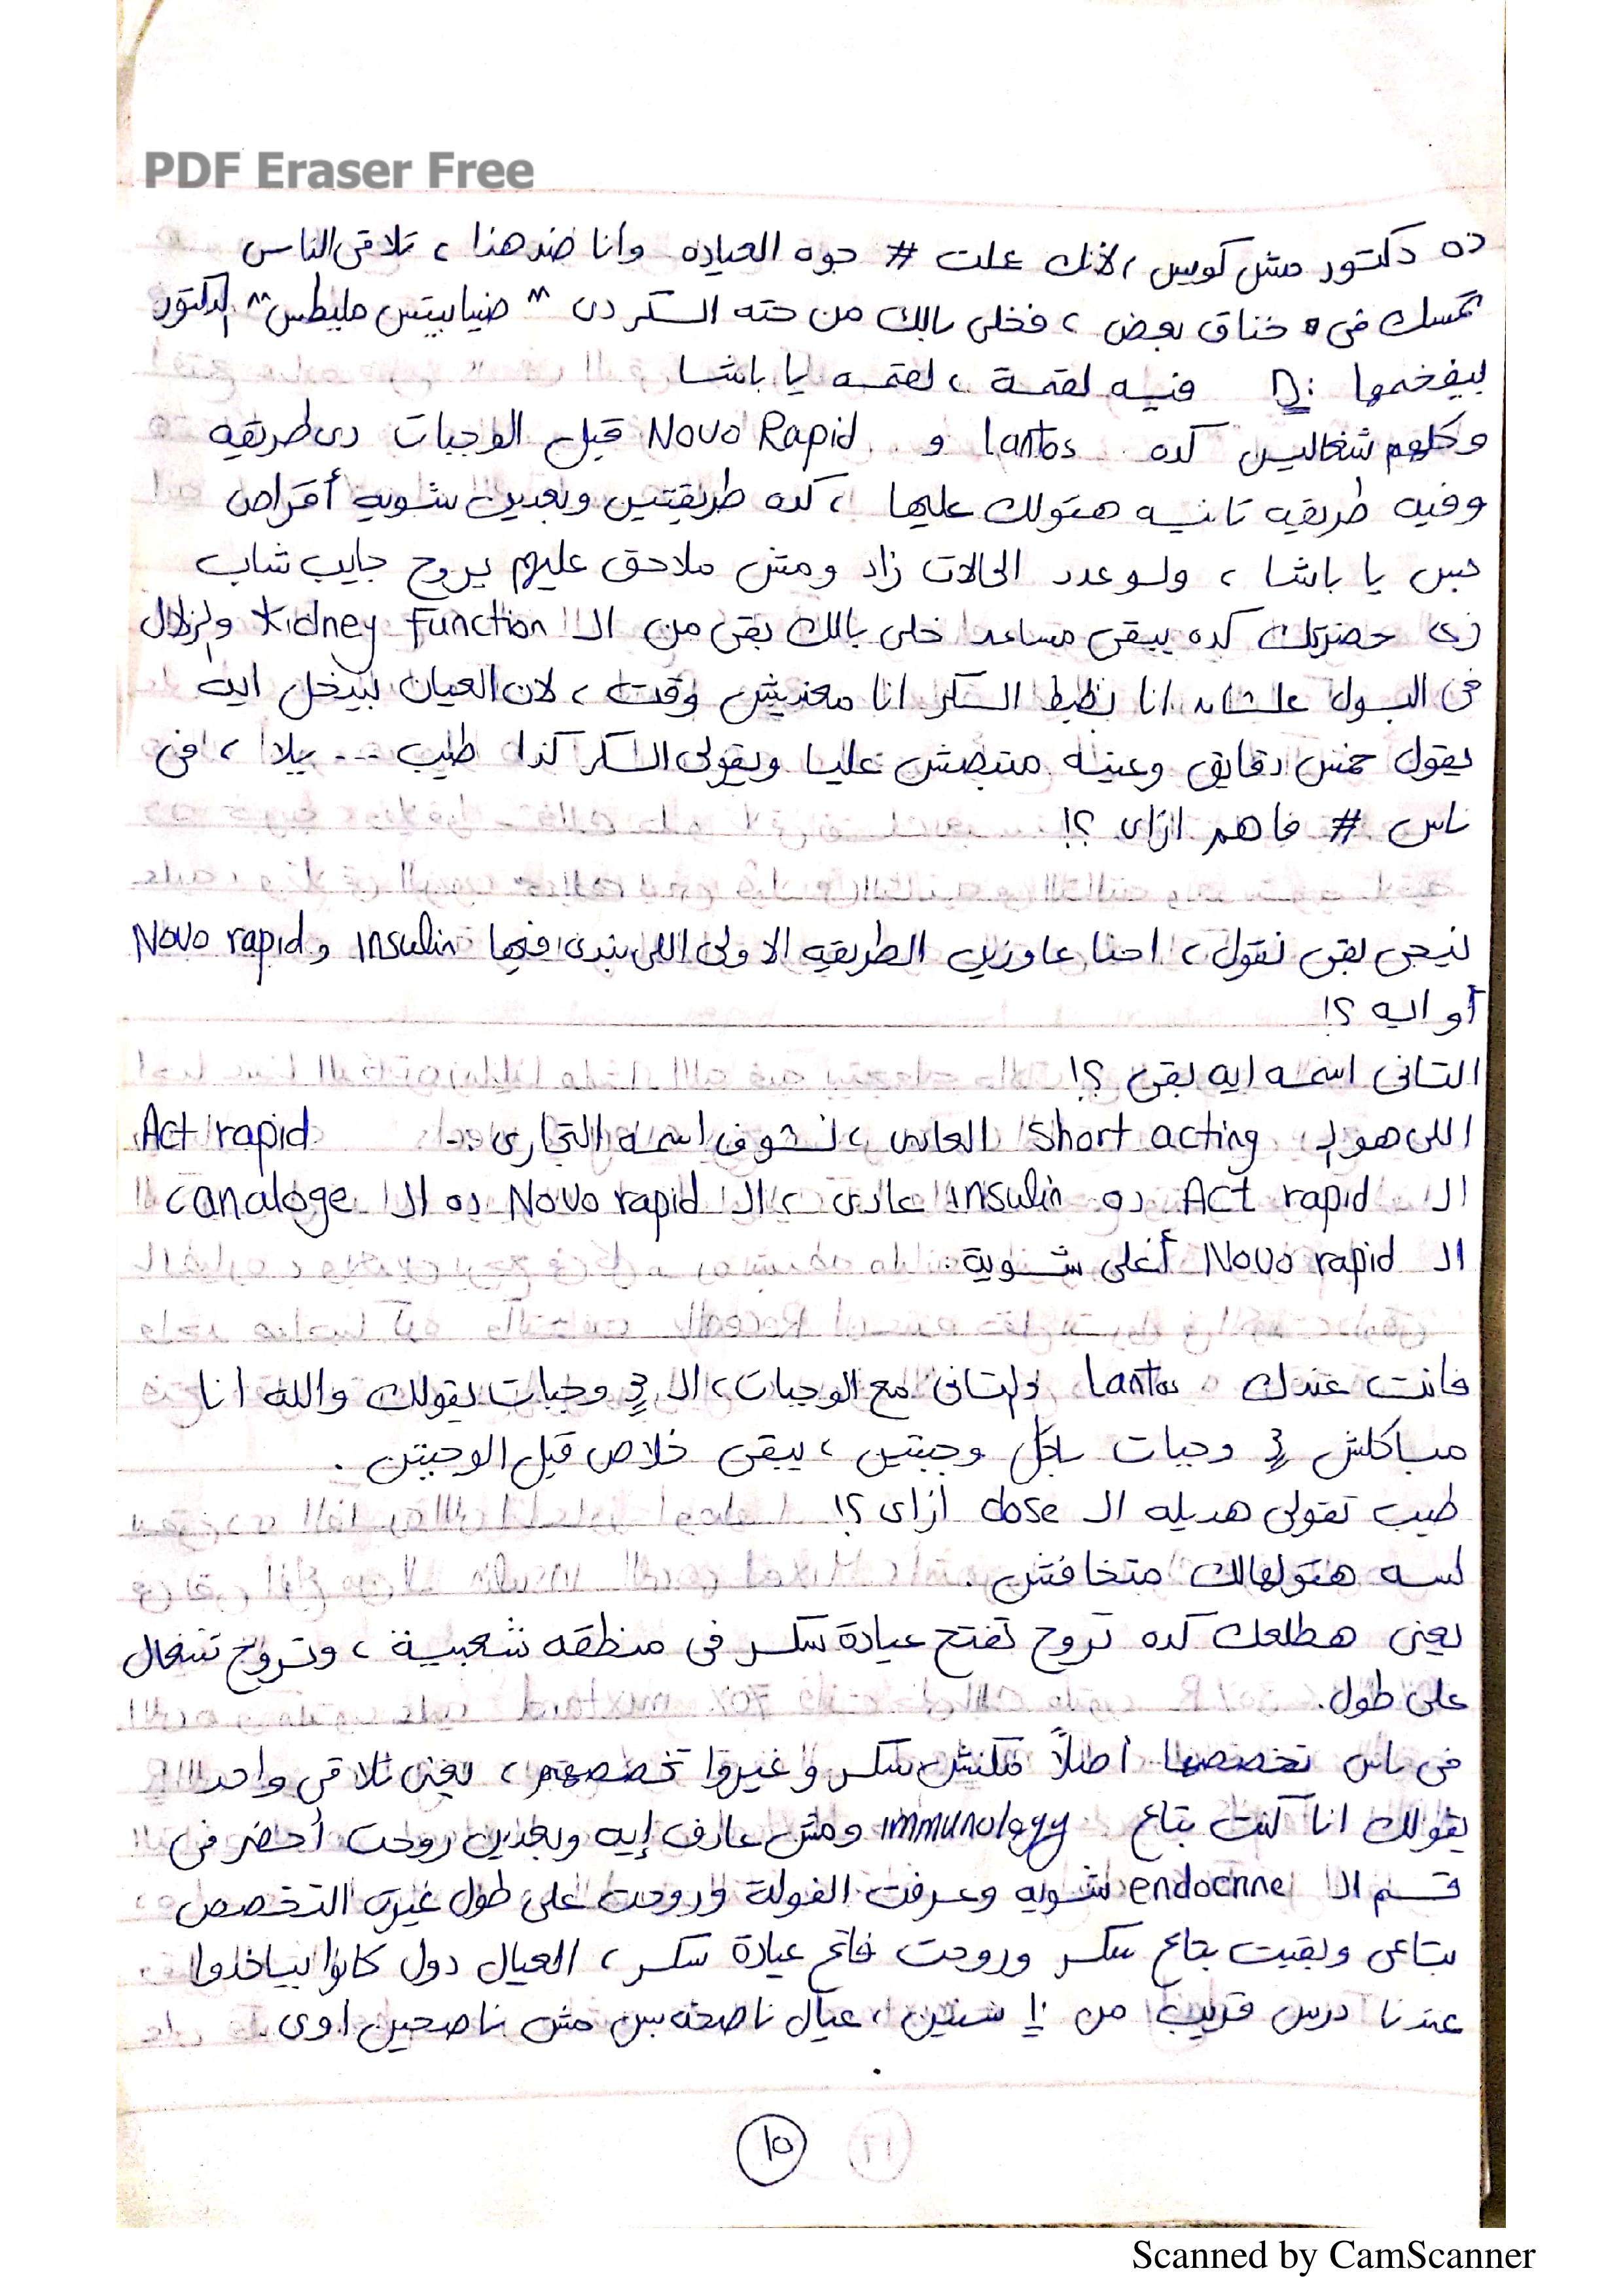 PDF Eraser Free
ده دكتور مش كويس، لانك علت # جوه العياده وانا ضد هذا، تلاقى الناس
تمسك فى خناق بعض، فخلى بالك من حته السكر دى " ضيابيتس مليطس" الدكتور
بيفخمها :D فيه لقمة، لقمه يا باشا
وكلهم شغاليين كده lantos و Novo Rapid قبل الوجبات دى طريقه
وفيه طريقه تانيه هقولك عليها، كده طريقتين وبعدين شويه أقراص
خبس يا باشا، ولو عدد الحالات زاد ومش ملاحق عليهم يروح جايب شاب
زى حضرتك كده يبقى مساعد خلى بالك بقى من الـ kidney function والزلال
فى البول علشان انا بظبط السكر انا معنديش وقت، لان العيان بيدخل ايه
يقول خمس دقايق وعينه متبصش عليا ويقولى السكر كذا طيب --- يلا، فى
ناس # فاهم ازاى ؟!
نيجى بقى نقول، احنا عاوزين الطريقه الاولى اللى بندى فيها insulin و Novo rapid
أو ايه ؟!
التانى اسمه ايه بقى ؟!
اللى هو الـ short acting العادى، نشوف اسمه التجارى :- Act rapid
الـ Act rapid ده insulin عادى، الـ Novo rapid ده الـ analoge،
الـ Novo rapid أغلى شوية.
فانت عندك lantos والتانى مع الوجبات، الـ 3 وجبات يقولك والله انا
مباكلش 3 وجبات باكل وجبتين، يبقى خلاص قبل الوجبتين.
طيب تقولى هديله الـ dose ازاى ؟!
لسه هقولهالك متخافش.
يعنى هطلعك كده تروح تفتح عيادة سكر فى منطقه شعبية، وتروح تشتغال
على طول.
فى ناس تخصصها أصلاً مكنش سكر وغيروا تخصصهم، يعنى تلاقى واحد
يقولك انا كنت بتاع immunology ومش عارف إيه وبعدين روحت أحضر فى
قسم الـ endocrine شويه وعرفت الفولة وروحت على طول غيرت التخصص
بتاعى وبقيت بتاع سكر وروحت فاتح عيادة سكر، العيال دول كانوا بياخدوا
عندنا درس قريب من 10 سنين، عيال ناصحه بس مش ناصحين اوى
.
١٥
Scanned by CamScanner